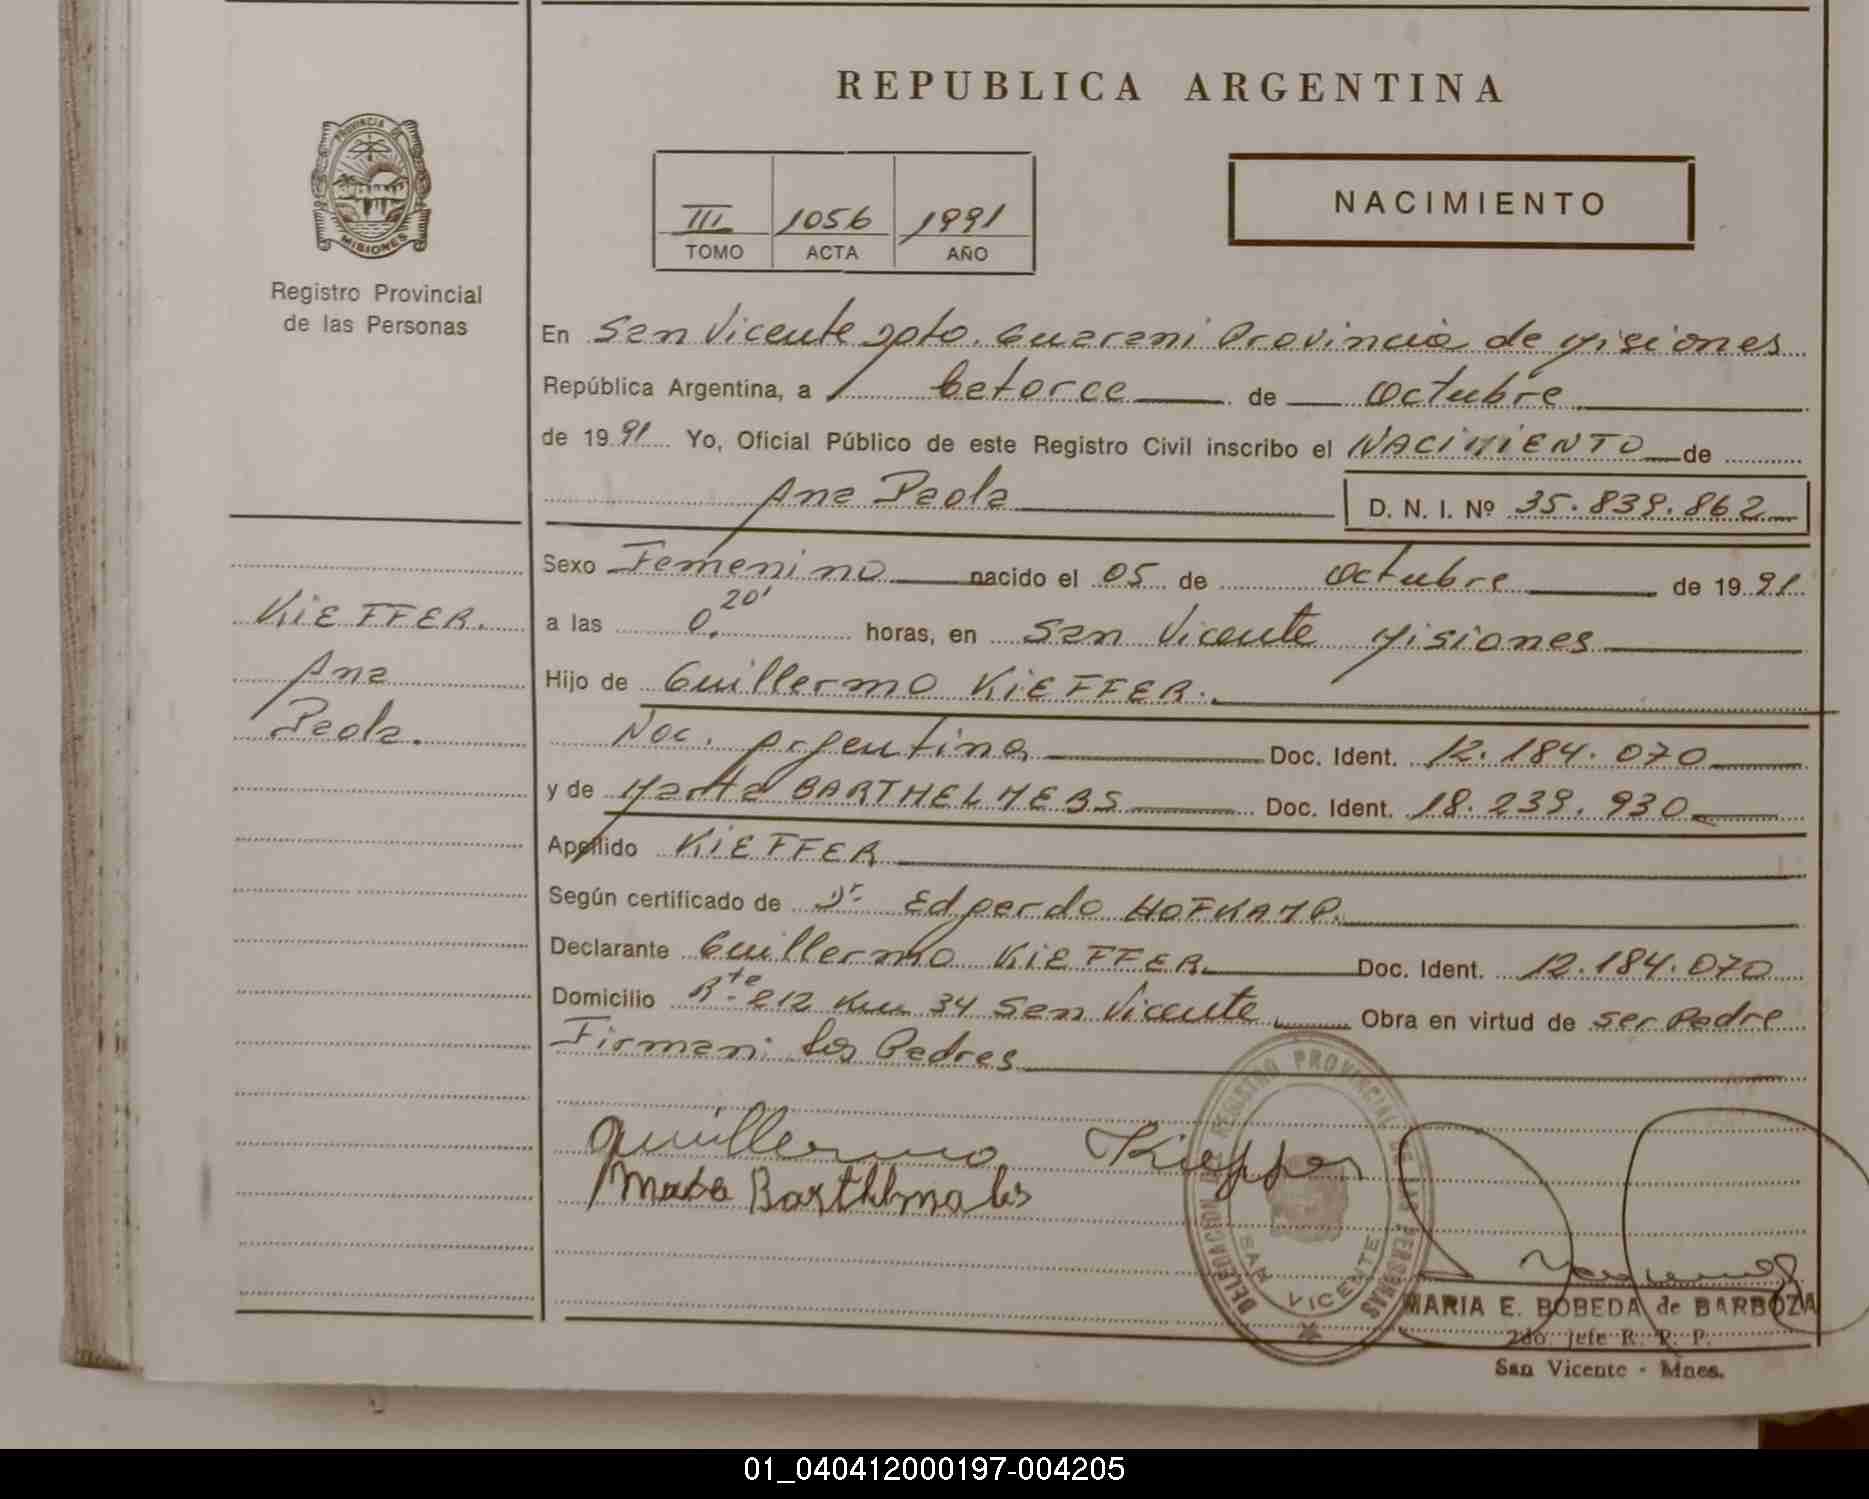 REPUBLICA ARGENTINA
PROVINCIA DE
MISIONES
Registro Provincial
de las Personas
III 1056 1991
TOMO ACTA AÑO
NACIMIENTO
En San Vicente Dpto. Guarani Provincia de Misiones
República Argentina, a Catorce de Octubre
de 1991 Yo, Oficial Público de este Registro Civil inscribo el NACIMIENTO de
Ana Paola D. N. I. Nº 35.839.862
Sexo Femenino nacido el 05 de octubre de 1991
a las 0,20' horas, en San Vicente Misiones
Hijo de Guillermo KIEFFER.
Nac. Argentina Doc. Ident. 12.184.070
y de Marta BARTHELMEBS Doc. Ident. 18.239.930
Apellido KIEFFER
Según certificado de Dr. Edgardo HOFKAMP.
Declarante Guillermo KIEFFER Doc. Ident. 12.184.070
Domicilio Rte. 212 Km 34 San Vicente Obra en virtud de ser Padre
Firman: los Padres
KIEFFER.
Ana
Paola.
Guillermo Kieffer
Marta Barthlmabs
DELEGACION DEL REGISTRO PROVINCIAL DE LAS PERSONAS
SAN VICENTE
MARIA E. BOBEDA de BARBOZA
2do. Jefe R. P. P.
San Vicente - Mnes.
01_040412000197-004205